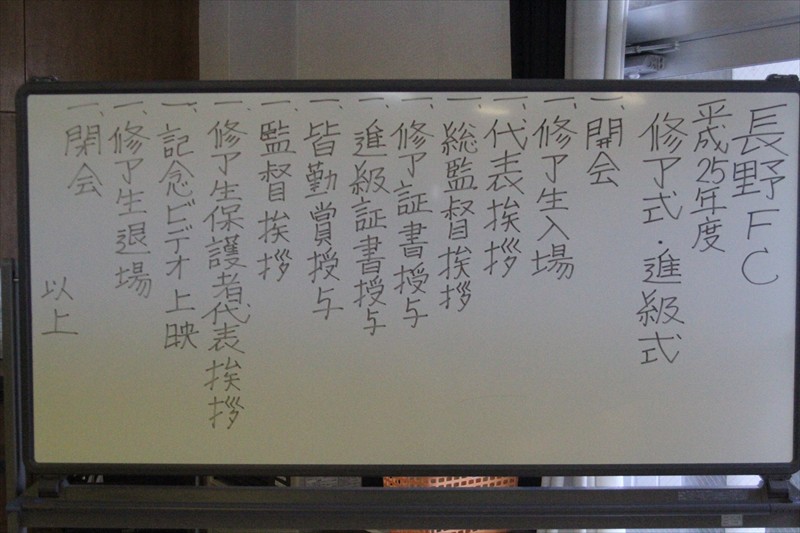 長野FC
平成25年度
修了式・進級式
一、開会
一、修了生入場
一、代表挨拶
一、総監督挨拶
一、修了証書授与
一、進級証書授与
一、皆勤賞授与
一、監督挨拶
一、修了生保護者代表挨拶
一、記念ビデオ上映
一、修了生退場
一、閉会
以上